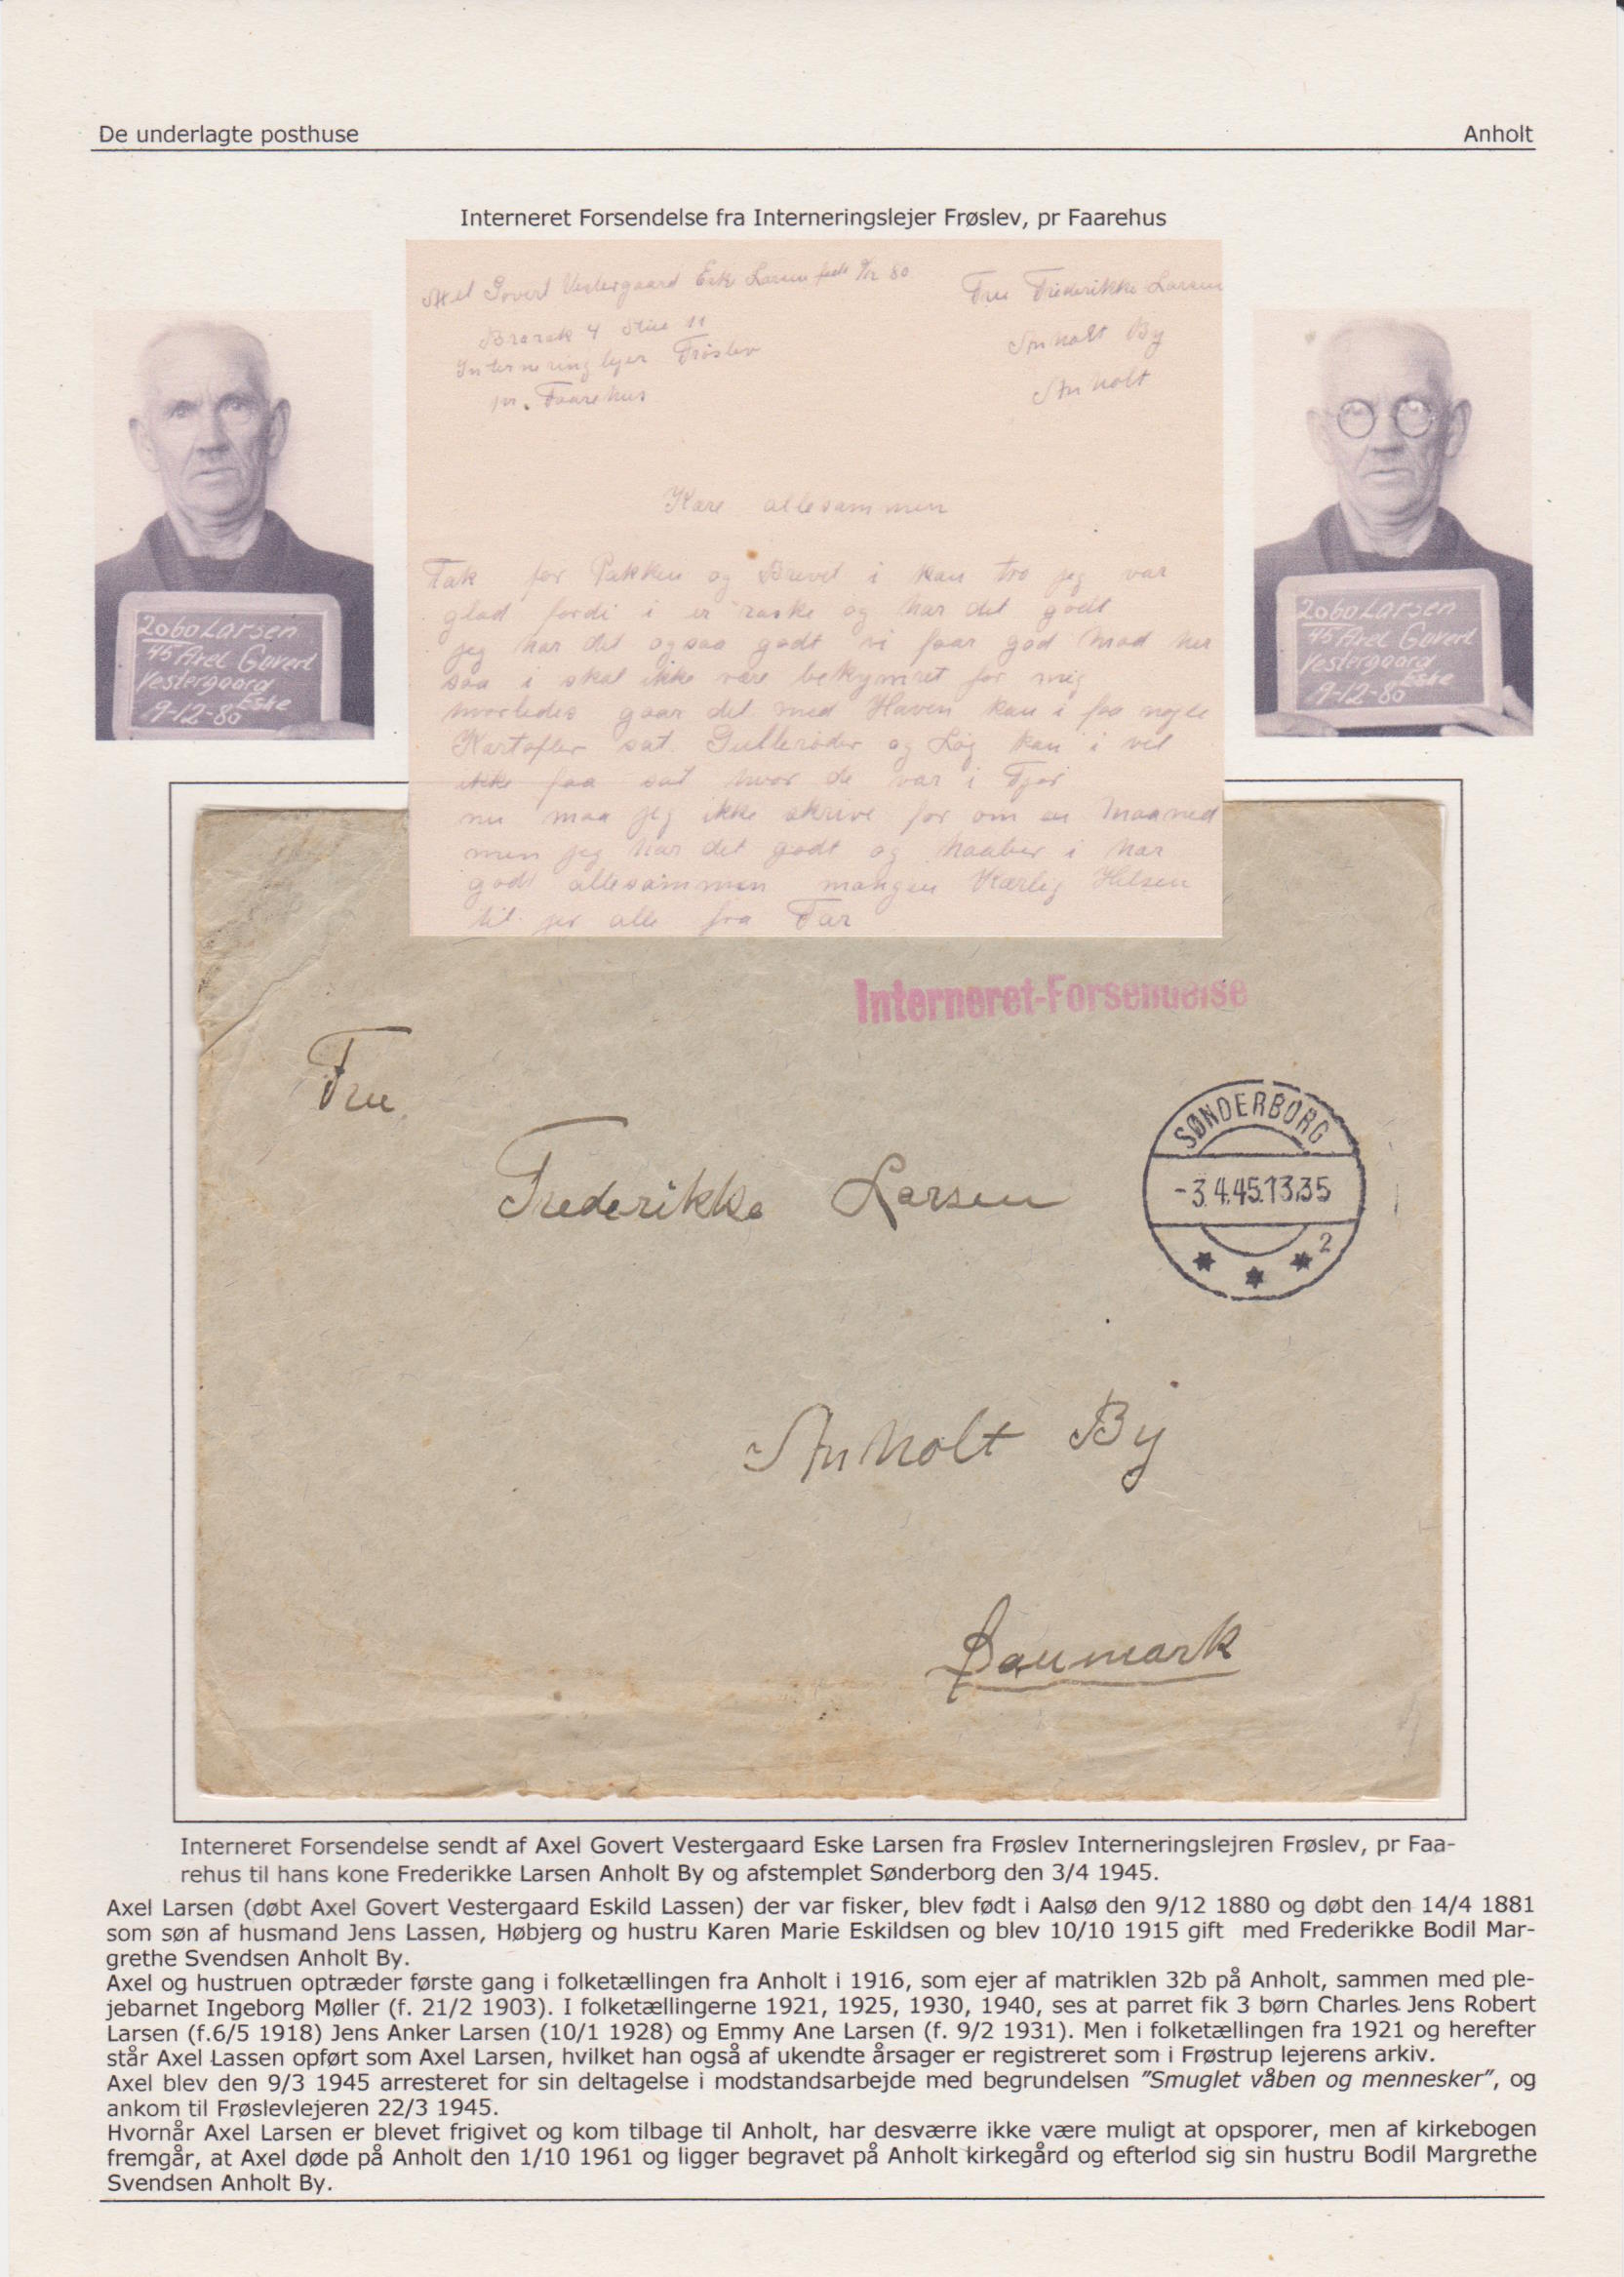 De underlagte posthuse Anholt
Interneret Forsendelse fra Interneringslejer Frøslev, pr Faarehus
Axel Govert Vestergaard Eske Larsen født 9/12 80
Brarak 4 Stue 11
Interneringlejer Frøslev
pr. Faarehus
Fru Frederikke Larsen
Anholt By
Anholt
Kære allesammen
Tak for Pakken og Brevet i kan tro jeg var
glad fordi i er raske og har det godt
jeg har det ogsaa godt vi faar god Mad her
saa i skal ikke være bekymret for mig
hvorledes gaar det med Haven kan i faa nogle
Kartofler sat. Gullerøder og Løg kan i vel
ikke faa sat hvor de var i Fjor
nu maa jeg ikke skrive før om en Maaned
men jeg har det godt og haaber i har
godt allesammen mangen Kærlig Hilsen
til jer alle fra Far
2060 Larsen
45 Axel Govert
Vestergaard
Eske
9-12-80
2060 Larsen
45 Axel Govert
Vestergaard
Eske
9-12-80
Interneret-Forsendelse
Fru
Frederikke Larsen
SØNDERBORG
-3.4.45.13.35
2
Anholt By
Danmark
Interneret Forsendelse sendt af Axel Govert Vestergaard Eske Larsen fra Frøslev Interneringslejren Frøslev, pr Faa-
rehus til hans kone Frederikke Larsen Anholt By og afstemplet Sønderborg den 3/4 1945.
Axel Larsen (døbt Axel Govert Vestergaard Eskild Lassen) der var fisker, blev født i Aalsø den 9/12 1880 og døbt den 14/4 1881
som søn af husmand Jens Lassen, Høbjerg og hustru Karen Marie Eskildsen og blev 10/10 1915 gift med Frederikke Bodil Mar-
grethe Svendsen Anholt By.
Axel og hustruen optræder første gang i folketællingen fra Anholt i 1916, som ejer af matriklen 32b på Anholt, sammen med ple-
jebarnet Ingeborg Møller (f. 21/2 1903). I folketællingerne 1921, 1925, 1930, 1940, ses at parret fik 3 børn Charles Jens Robert
Larsen (f.6/5 1918) Jens Anker Larsen (10/1 1928) og Emmy Ane Larsen (f. 9/2 1931). Men i folketællingen fra 1921 og herefter
står Axel Lassen opført som Axel Larsen, hvilket han også af ukendte årsager er registreret som i Frøstrup lejerens arkiv.
Axel blev den 9/3 1945 arresteret for sin deltagelse i modstandsarbejde med begrundelsen ”Smuglet våben og mennesker”, og
ankom til Frøslevlejeren 22/3 1945.
Hvornår Axel Larsen er blevet frigivet og kom tilbage til Anholt, har desværre ikke være muligt at opsporer, men af kirkebogen
fremgår, at Axel døde på Anholt den 1/10 1961 og ligger begravet på Anholt kirkegård og efterlod sig sin hustru Bodil Margrethe
Svendsen Anholt By.